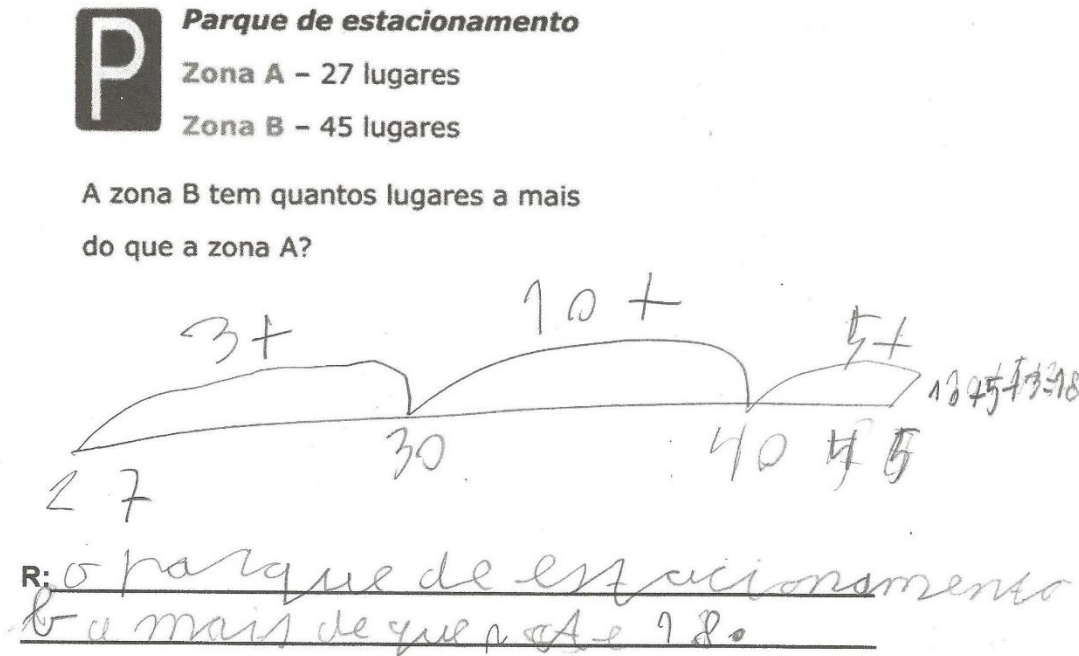 P
Parque de estacionamento
Zona A – 27 lugares
Zona B – 45 lugares
A zona B tem quantos lugares a mais
do que a zona A?
3+ 10+ 5+
10+5+3=18
27 30 40 45
R: o parque de estacionamento
b a mais de que 18.